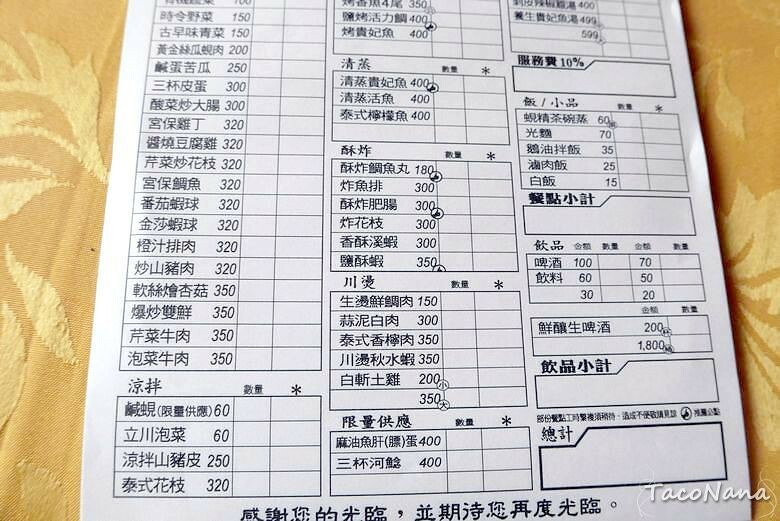 有機蔬菜 150
時令野菜 150
古早味青菜 150
黃金絲瓜蜆肉 200
鹹蛋苦瓜 250
三杯皮蛋 300
酸菜炒大腸 300
宮保雞丁 320
醬燒豆腐雞 320
芹菜炒花枝 320
宮保鯛魚 320
番茄蝦球 320
金莎蝦球 320
橙汁排肉 320
炒山豬肉 320
軟絲燴杏菇 350
爆炒雙鮮 350
芹菜牛肉 350
泡菜牛肉 350
涼拌 數量 *
鹹蜆(限量供應) 60
立川泡菜 60
涼拌山豬皮 250
泰式花枝 320
烤香魚4尾 350
鹽烤活力鯛 400
烤貴妃魚 400
清蒸 數量 *
清蒸貴妃魚 400
清蒸活魚 400
泰式檸檬魚 400
酥炸 數量 *
酥炸鯛魚丸 180
炸魚排 300
酥炸肥腸 300
炸花枝 300
香酥溪蝦 300
鹽酥蝦 350
川燙 數量 *
生燙鮮鯛肉 150
蒜泥白肉 300
泰式香檸肉 350
川燙秋水蝦 350
白斬土雞 200 小
350 大
限量供應 數量 *
麻油魚肝(膘)蛋 400
三杯河鯰 400
剝皮辣椒雞湯 499
養生貴妃魚湯 499
599
服務費10%
飯/小品 數量 *
蜆精茶碗蒸 60
光麵 70
鵝油拌飯 35
滷肉飯 25
白飯 15
餐點小計
飲品 金額 數量 金額 數量
啤酒 100 70
飲料 60 50
30 20
金額 數量
鮮釀生啤酒 200 杯
1,800 桶
飲品小計
部份餐點工時繁複須稍待，造成不便敬請見諒 推薦必點
總計
感謝您的光臨，並期待您再度光臨。
TacoNana